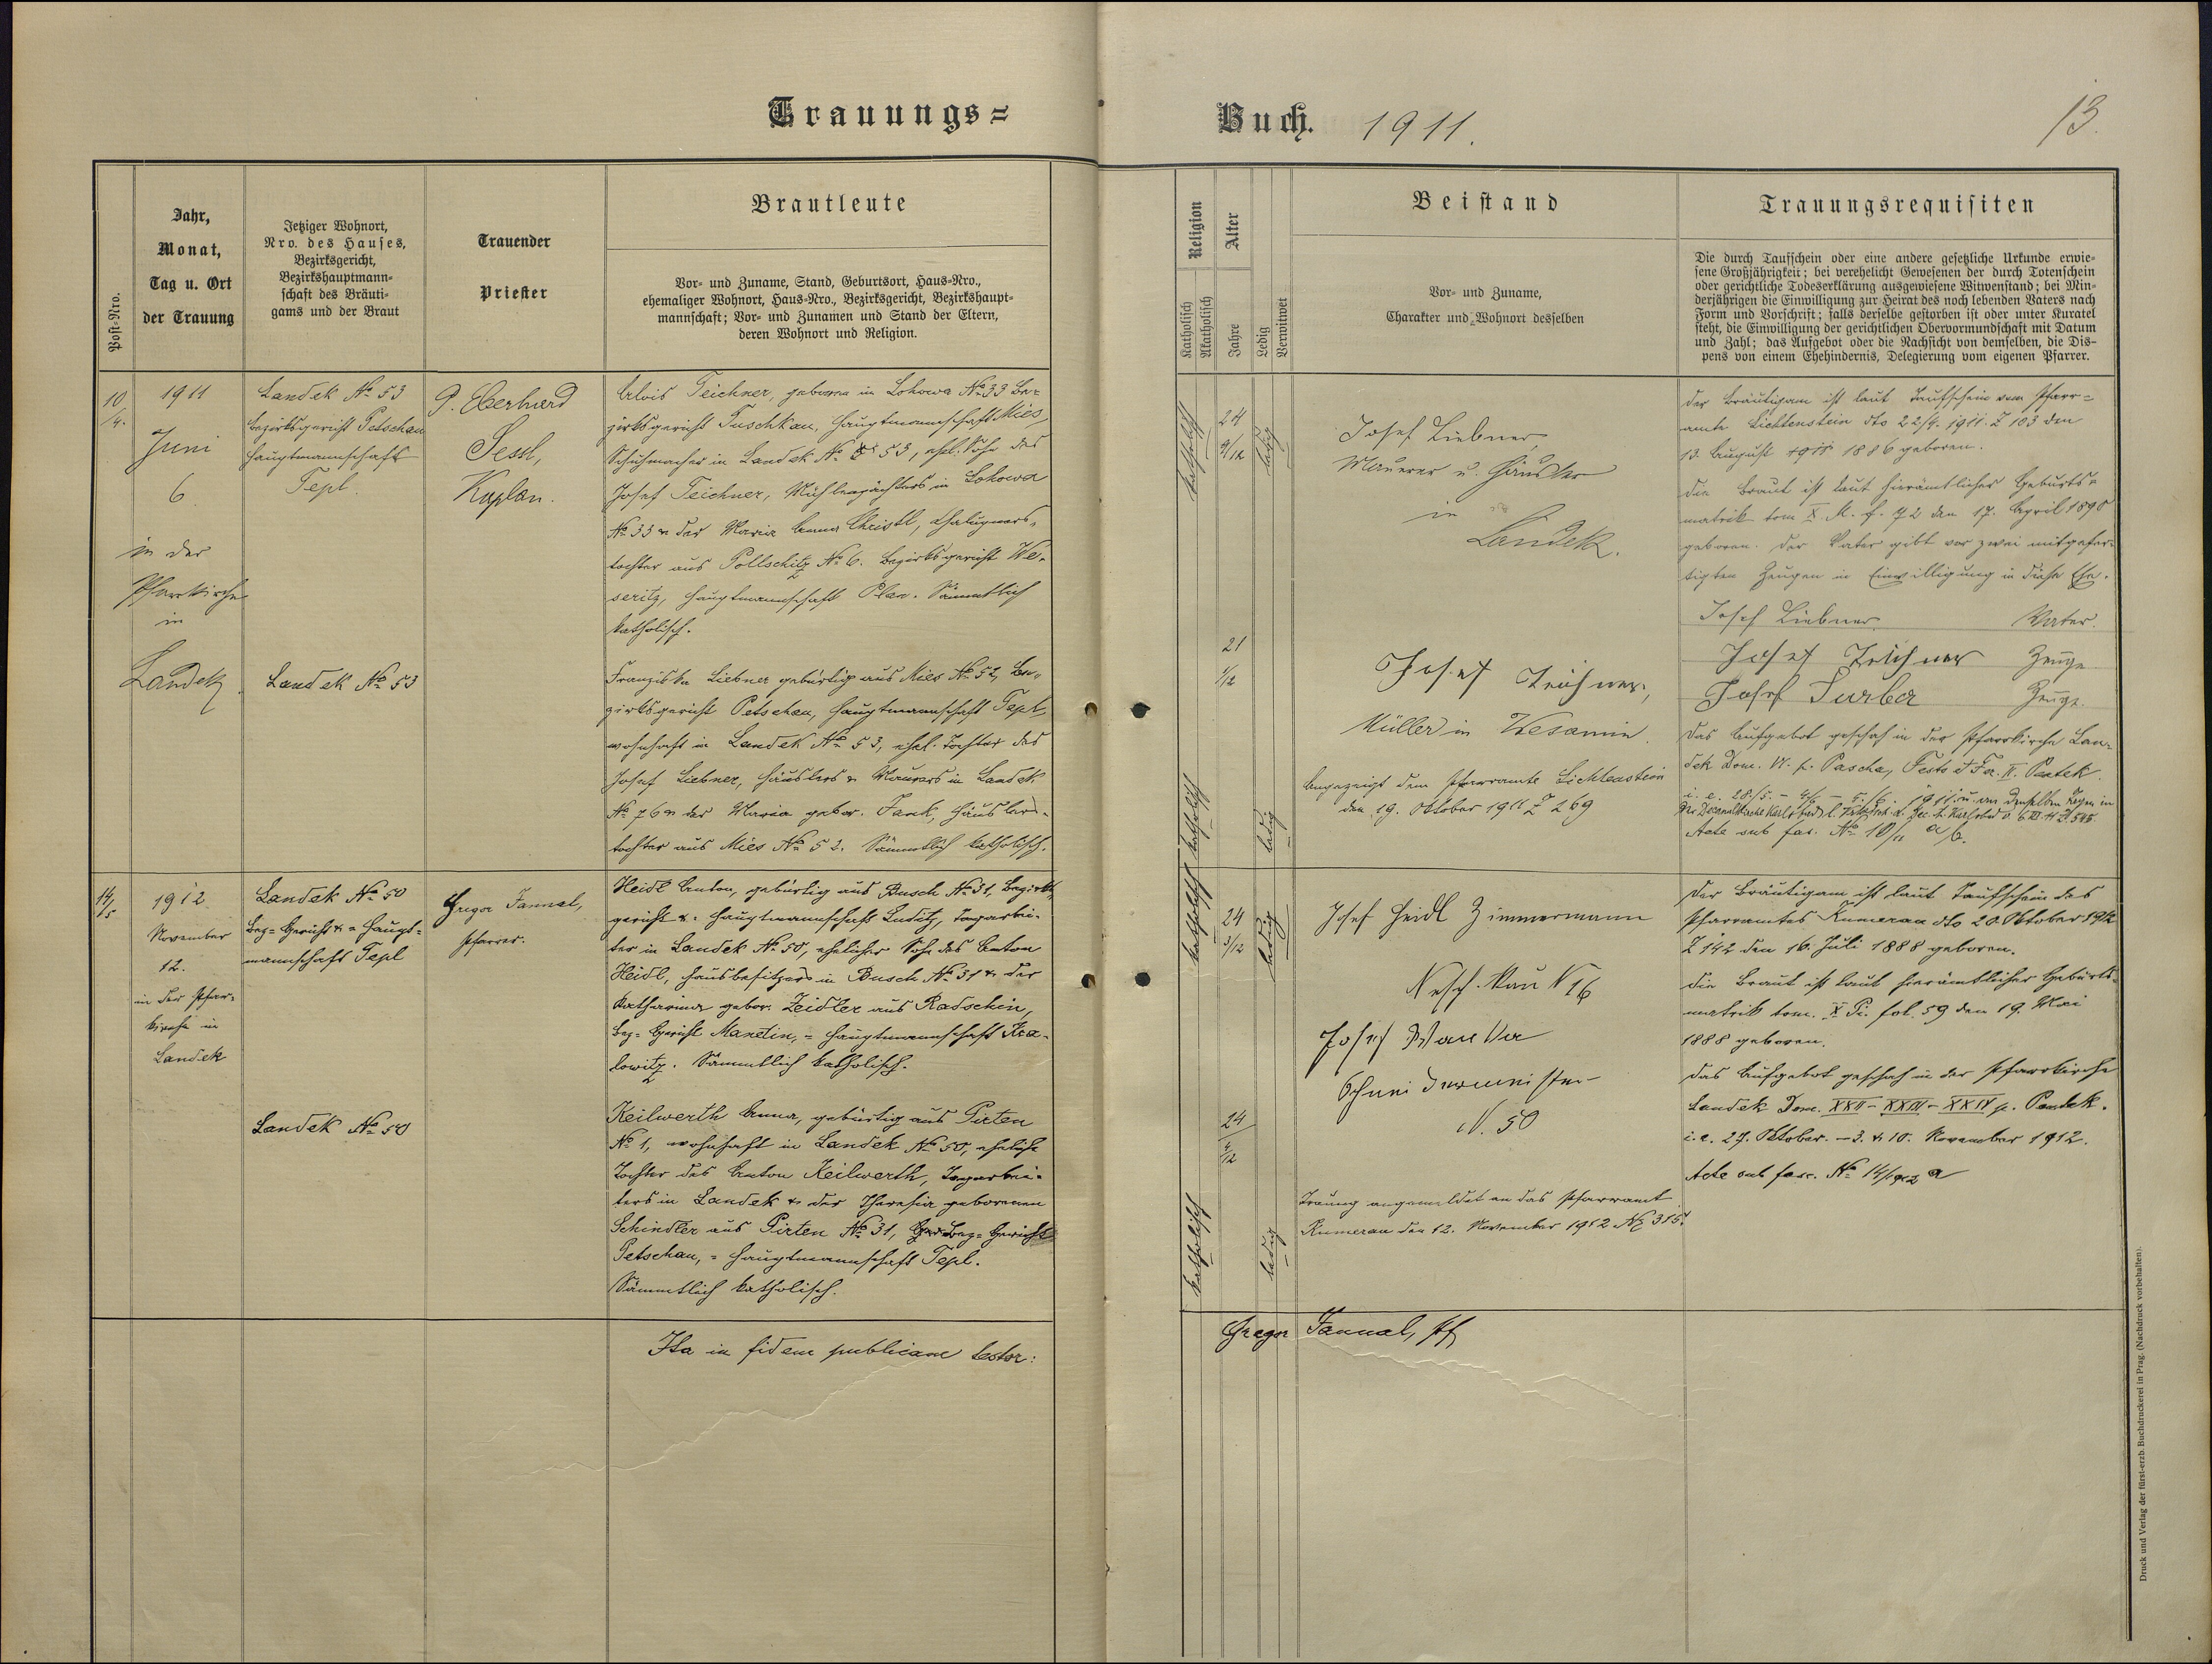 Trauungs=
Buch. 1911.
13.
Post-Nro.
Jahr,
Monat,
Tag u. Ort
der Trauung
Jetziger Wohnort,
Nro. des Hauses,
Bezirksgericht,
Bezirkshauptmann-
schaft des Bräuti-
gams und der Braut
Trauender
Priester
Brautleute
Vor- und Zuname, Stand, Geburtsort, Haus-Nro.,
ehemaliger Wohnort, Haus-Nro., Bezirksgericht, Bezirkshaupt-
mannschaft; Vor- und Zunamen und Stand der Eltern,
deren Wohnort und Religion.
Religion
Katholisch
Akatholisch
Alter
Jahre
Ledig
Verwitwet
Beistand
Vor- und Zuname,
Charakter und Wohnort desselben
Trauungsrequisiten
Die durch Taufschein oder eine andere gesetzliche Urkunde erwie-
sene Großjährigkeit; bei verehelicht Gewesenen der durch Totenschein
oder gerichtliche Todeserklärung ausgewiesene Witwenstand; bei Min-
derjährigen die Einwilligung zur Heirat des noch lebenden Vaters nach
Form und Vorschrift; falls derselbe gestorben ist oder unter Kuratel
steht, die Einwilligung der gerichtlichen Obervormundschaft mit Datum
und Zahl; das Aufgebot oder die Nachsicht von demselben, die Dis-
pens von einem Ehehindernis, Delegierung vom eigenen Pfarrer.
10/4.
1911
Juni
6
in der
Pfarrkirche
in
Landek
Landek No 53
Bezirksgericht Petschau
Hauptmannschaft
Tepl.
Landek No 53
P. Eberhard
Sessl,
Kaplan.
Alois Teichner, geboren in Lohowa No 33 Be-
zirksgericht Tuschkau, Hauptmannschaft Mies,
Schuhmacher in Landek No 53, ehel. Sohn des
Josef Teichner, Mühlenpächters in Lohowa
No 33 u der Maria Anna Christl, Chalupners-
tochter aus Pollschitz No 6. Bezirksgericht We-
seritz, Hauptmannschaft Plan. Sämmtlich
katholisch.
Franziska Liebner gebürtig aus Mies No 52, Be-
zirksgericht Petschau, Hauptmannschaft Tepl,
wohnhaft in Landek No 53, ehel. Tochter des
Josef Liebner, Häuslers u Maurers in Landek
No 76 u der Maria gebor. Fank, Häuslers-
tochter aus Mies No 52. Sämmtlich katholisch.
katholisch
24
9/12
ledig
21
1/12
katholisch
ledig
Josef Liebner
Maurer u. Häusler
in
Landek.
Josef Teichner,
Müller in Wesamin.
Angezeigt dem Pfarramte Lichtenstein
den 19. Oktober 1911 Z 269
Der Bräutigam ist laut Taufschein vom Pfarr-
amte Lichtenstein dto 22/4. 1911. Z 103 den
13. August 1886 geboren.
Die Braut ist laut hierämtlicher Geburts-
matrik tom X. M. f. 72 den 17. April 1890
geboren. Der Vater gibt vor zwei mitgefer-
tigten Zeugen in Einwilligung in diese Ehe.
Josef Liebner Vater.
Josef Teichner Zeuge
Josef Surber Zeuge.
Das Aufgebot geschah in der Pfarrkirche Lan-
dek Dom. VI. p. Pascha, Festo et Fer. II. Pentek.
i. e. 28./5. - 4/6 - 5./6. 1911 u. an denselben Tagen in
der Decanalkirche Karlsbad
Acte sub fas. No 10/11 a/b.
14/5
1912
November
12.
in der Pfarr-
kirche in
Landek
Landek No 50
Bez-Gericht u = Haupt-
mannschaft Tepl
Landek No 50
Gregor Fannal,
Pfarrer.
Heidl Anton, gebürtig aus Busch No 31, Bezirks-
gericht u = Hauptmannschaft Luditz, Tagarbei-
ter in Landek No 50, ehelicher Sohn des Anton
Heidl, Hausbesitzers in Busch No 31 u. der
Katharina gebor. Zeidler aus Radschin,
Bez-Gericht Manetin, = Hauptmannschaft Kra-
lowitz. Sämmtlich katholisch.
Keilwerth Anna, gebürtig aus Pirten
No 1, wohnhaft in Landek No 50, eheliche
Tochter des Anton Keilwerth, Tagarbei-
ters in Landek u der Theresia geborenen
Schindler aus Pirten No 31, Bez-Gericht
Petschau, = Hauptmannschaft Tepl.
Sämmtlich katholisch.
katholisch
24
3/12
ledig
24
/12
katholisch
ledig
Josef Heidl Zimmermann
N 16
Josef
Schneidermeister
N. 50
Trauung angemeldet an das Pfarramt
Kumerau den 12. November 1912 No 315.
Der Bräutigam ist laut Taufschein des
Pfarramtes Kumerau dto 20. Oktober 1912
Z 142 den 16. Juli 1888 geboren.
Die Braut ist laut hierämtlicher Geburts-
matrik tom. X Pi. fol. 59 den 19. Mai
1888 geboren.
Das Aufgebot geschah in der Pfarrkirche
Landek Dom. XXII - XXIII - XXIV p. Pentek.
i. e. 27. Oktober. - 3. u 10. November 1912.
Acte sub fasc. No 14/1912 a
Ita in fidem publicam testor:
Gregor Fannal, Pf
Druck und Verlag der fürst-erzb. Buchdruckerei in Prag. (Nachdruck vorbehalten).